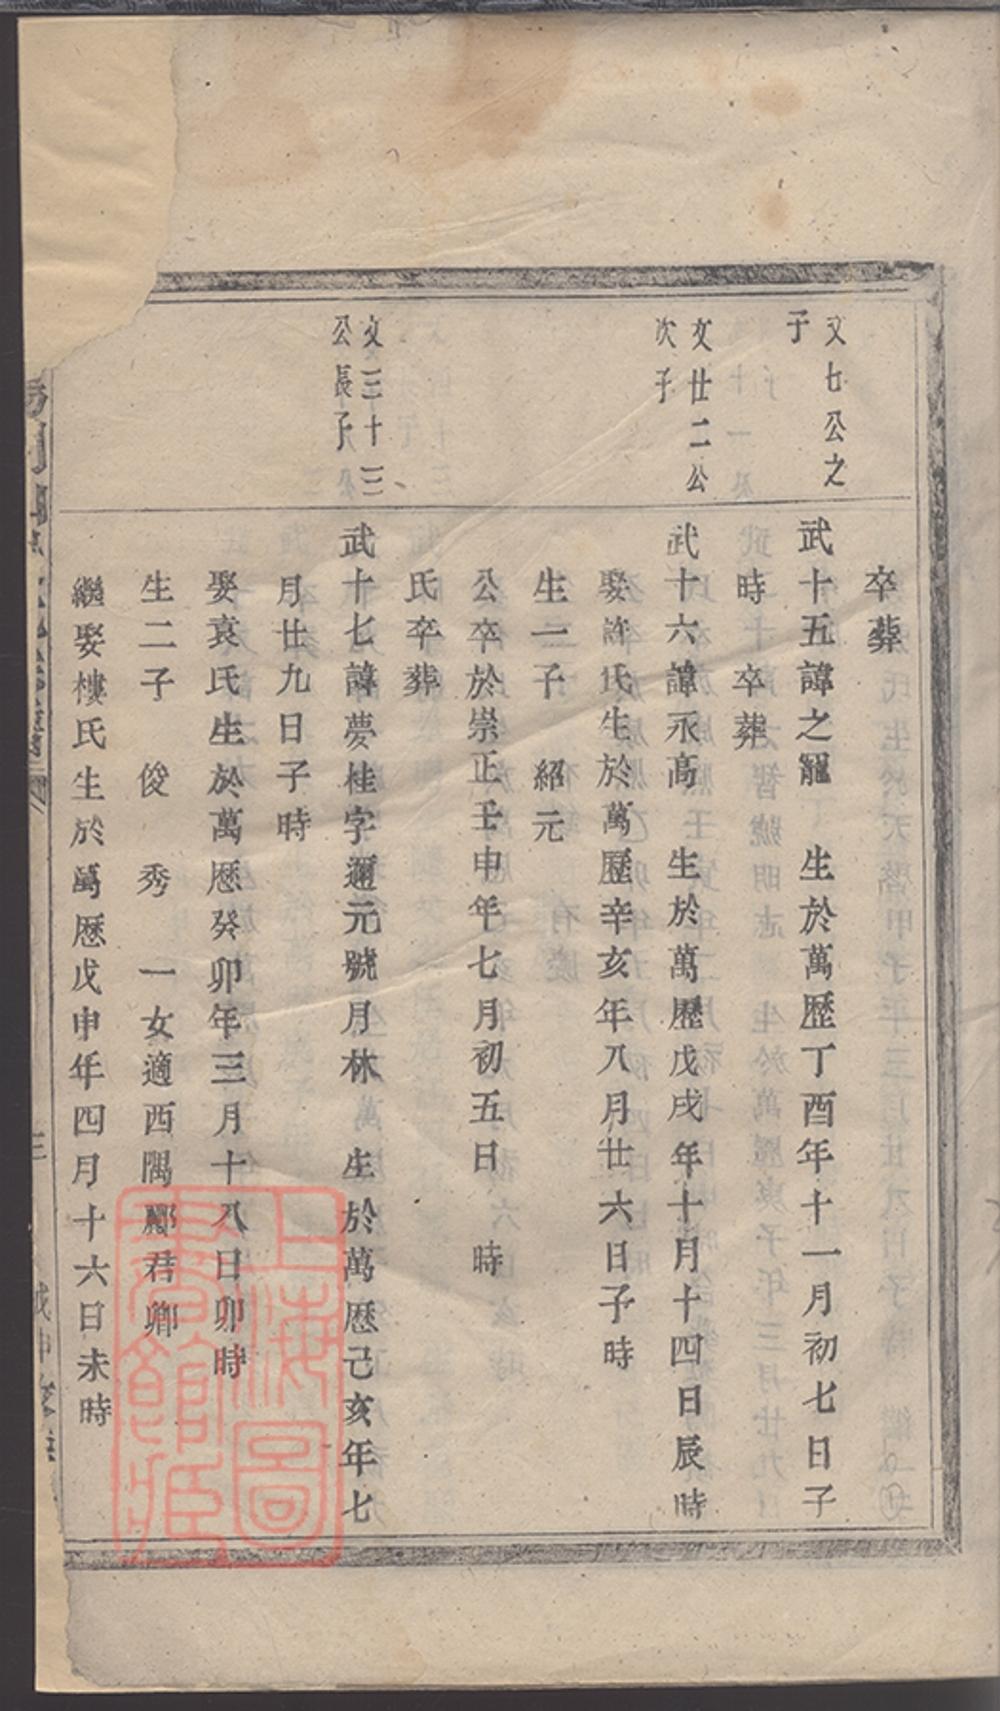 卒葬
文七公之
子
武十五諱之寵　生於萬歷丁酉年十一月初七日子
時　卒葬
文廿二公
次子
武十六諱永高　生於萬歷戊戌年十月十四日辰時
娶許氏生於萬歷辛亥年八月廿六日子時
生一子　紹元
公卒於崇正壬申年七月初五日　時
氏卒葬
文三十三
公長子
武十七諱夢桂字邇元號月林　生於萬歷己亥年七
月廿九日子時
娶袁氏生於萬歷癸卯年三月十八日卯時
生二子　俊　秀　一女適西隅酈君卿
繼娶樓氏生於萬歷戊申年四月十六日未時
三
上海圖
書館藏